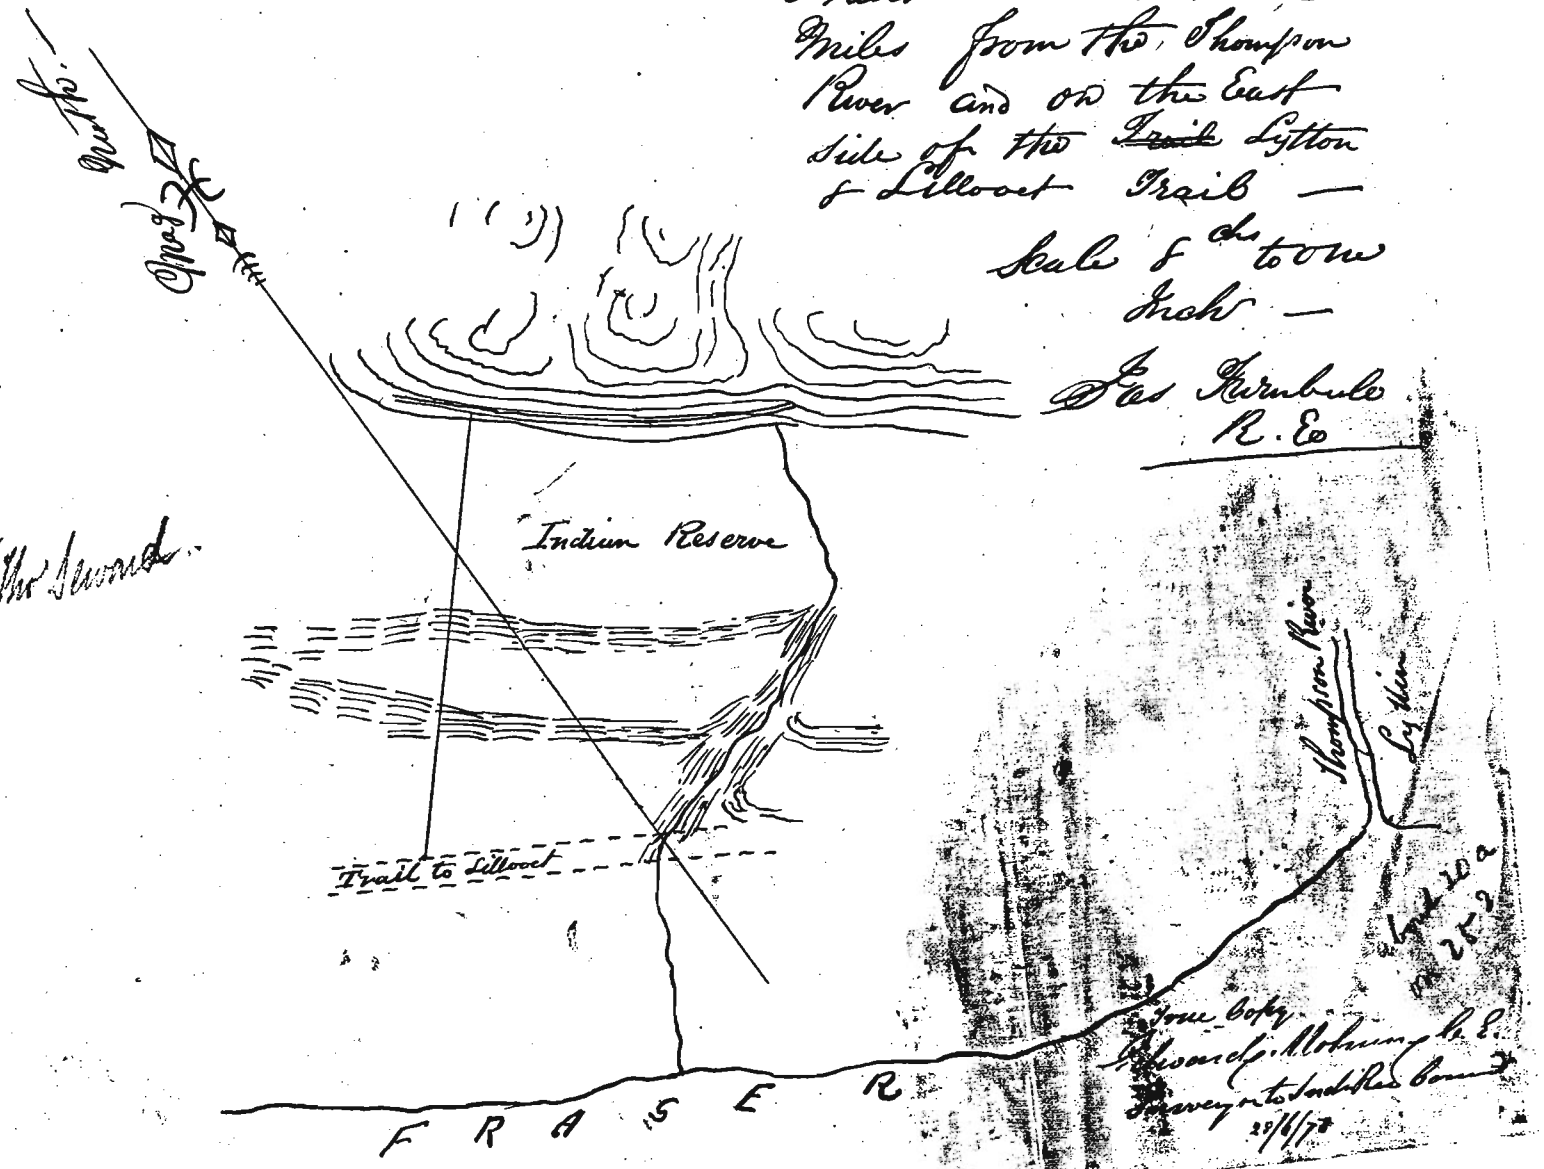 Miles from the Thompson
River and on the East
side of the Trail Lytton
& Lillooet Trail —
Scale 8 chs to one
Inch —
Jas Turnbull
R. E.
North.
Mag
Indian Reserve
Thompson River
Trail to Lillooet
True Copy
Edward Mohun C. E.
Surveyor to Ind Res Commn
28/6/78
FRASER